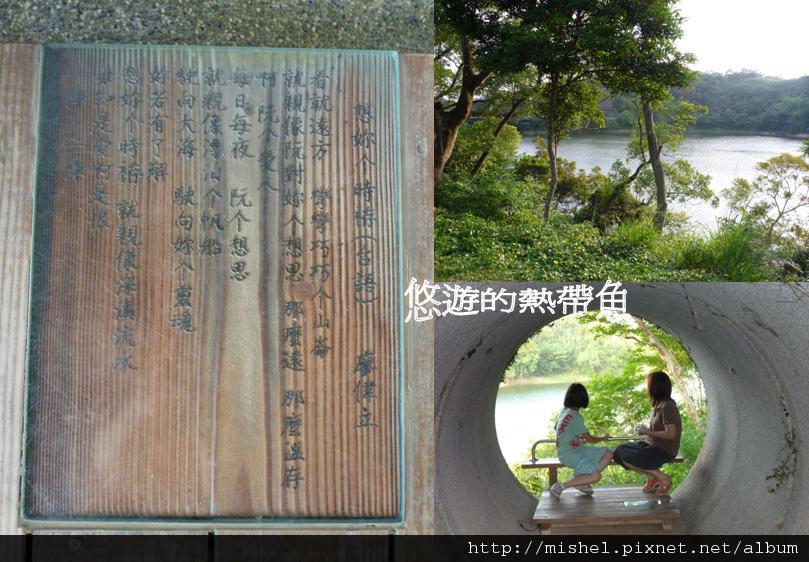 想妳个時袸(台語)　廖偉立
看就遠方　彎彎巧巧个山崙
就親像阮對妳个想思　那麼遠　那麼溫存
啊　阮个愛人
每日每夜　阮个想思
就親像漂泊个帆船
駛向大海　駛向妳个靈魂
好若有了解
想妳个時袸　就親像深溝流水
毋知是愛也是恨
一陣一陣
悠遊的熱帶魚
http://mishel.pixnet.net/album